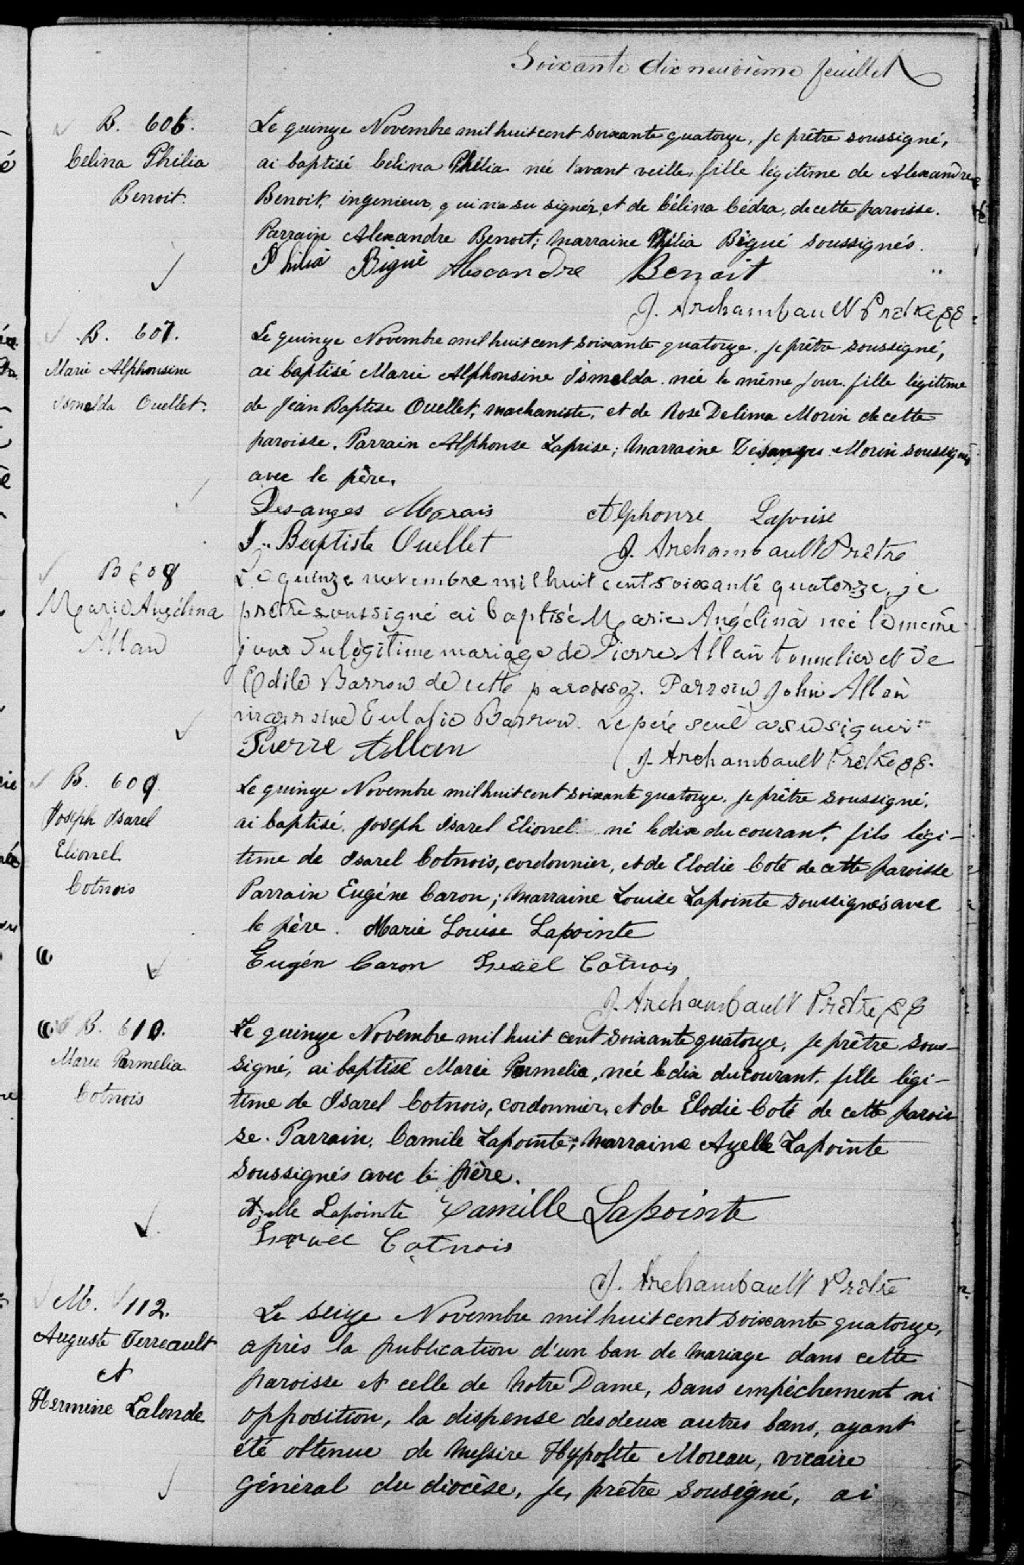 Soixante dix neuvième feuillet
B. 606.
Celina Philia
Benoit.
Le quinze Novembre mil huit cent soixante quatorze, je prêtre soussigné,
ai baptisé Celina Philia née l'avant veille, fille légitime de Alexandre
Benoit, ingenieur, qui n'a su signer, et de Célina Cédra, de cette paroisse.
Parrain Alexandre Benoit; Marraine Philia Bigué soussignés.
Philia Bigué Alexandre Benoit
J. Archambault Prêtre SS
B. 607.
Marie Alphonsine
Ismelda Ouellet.
Le quinze Novembre mil huit cent soixante quatorze, je prêtre soussigné,
ai baptisé Marie Alphonsine Ismelda née le même jour, fille légitime
de Jean Baptise Ouellet, machaniste, et de Rose Delima Morin de cette
paroisse. Parrain Alphonse Laprise; Marraine Desanges Morin soussignés
avec le père.
Desanges Marais Alphonse Laprise
J. Baptiste Ouellet J. Archambault Prêtre
B 608
Marie Angélina
Allan
Le quinze novembre mil huit cent soixante quatorze, je
prêtre soussigné ai baptisé Marie Angélina née le même
jour du légitime mariage de Pierre Allan tonnelier et de
Odile Barron de cette paroisse. Parrain John Allan
marraine Eulalie Barron. Le père seul a su signer
Pierre Allan J. Archambault Prêtre SS.
B. 609.
Joseph Isarel
Elionel
Cotnois
Le quinze Novembre mil huit cent soixante quatorze, je prêtre soussigné,
ai baptisé, Joseph Isarel Elionel né le dix du courant, fils légi-
time de Isarel Cotnois, cordonnier, et de Elodie Coté de cette paroisse
Parrain Eugéne Caron; Marraine Louise Lapointe soussignés avec
le père. Marie Louise Lapointe
Eugén Caron Israël Cotnois
J. Archambault Prêtre SS
B. 610.
Marie Parmelia
Cotnois
Le quinze Novembre mil huit cent soixante quatorze, je prêtre sous-
signé, ai baptisé Marie Parmelia, née le dix du courant, fille légi-
time de Isarel Cotnois, cordonnier, et de Elodie Coté de cette parois
se. Parrain, Camile Lapointe; Marraine Azelle Lapointe
soussignés avec le père.
Azelle Lapointe Camille Lapointe
Israel Cotnois
J. Archambault Prêtre
M. 112.
Auguste Terreault
et
Hermine Lalonde
Le seize Novembre mil huit cent soixante quatorze,
après la publication d'un ban de mariage dans cette
paroisse et celle de Notre Dame, sans empêchement ni
opposition, la dispense des deux autres bans, ayant
été obtenue de Messire Hypolite Moreau, vicaire
général du diocèse, je, prêtre sousigné, ai